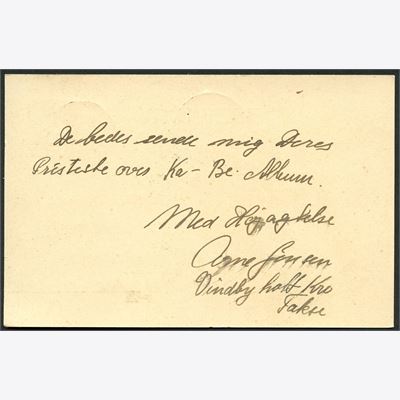 De bedes sende mig Deres
Prisliste over Ka-Be Album.
Med Højagtelse
Agne Jensen
Vindbyholt Kro
Fakse